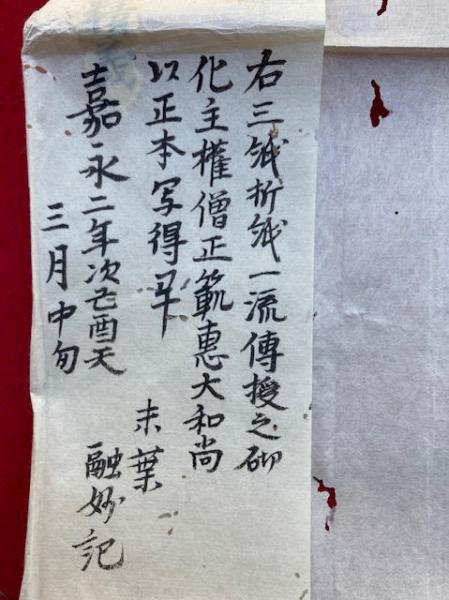 右三紙折紙一流傳授之砌
化主權僧正範惠大和尚
以正本写得畢
嘉永二年次己酉天
三月中旬
末葉
融妙記